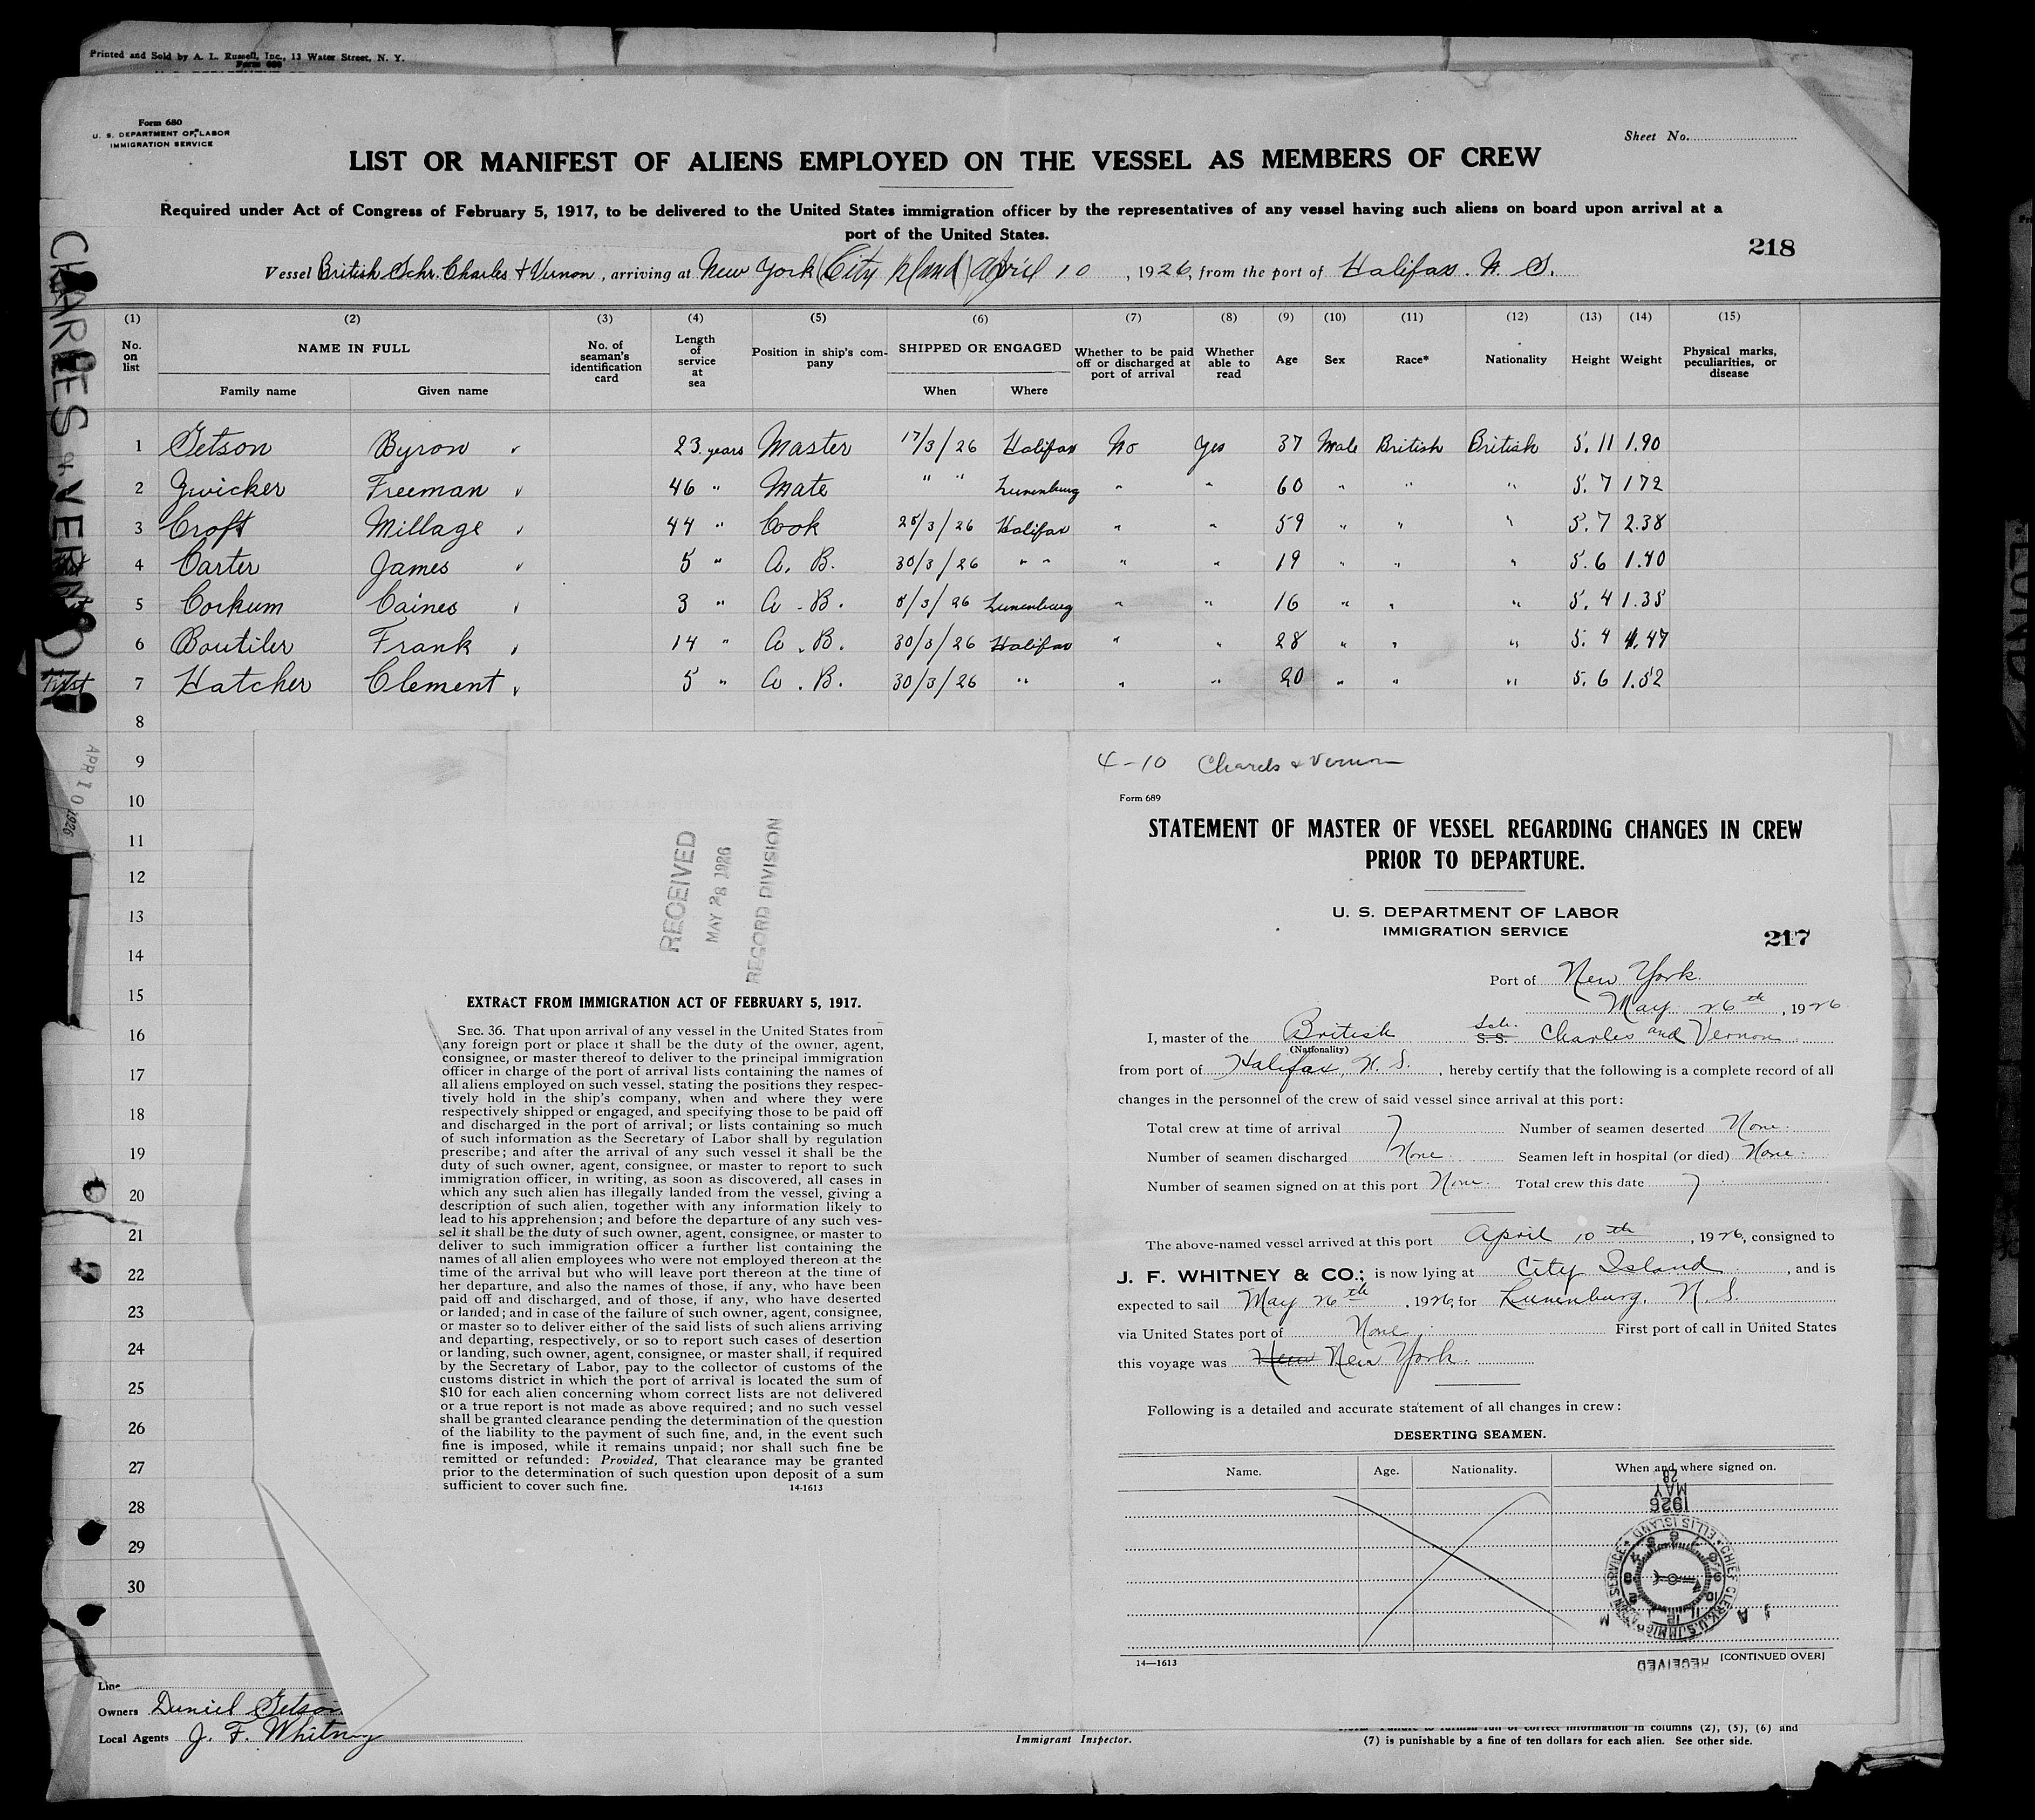 Printed and Sold by A. L. Russell, Inc., 13 Water Street, N. Y.
Form 680
Form 680
U. S. DEPARTMENT OF LABOR
IMMIGRATION SERVICE
Sheet No.
LIST OR MANIFEST OF ALIENS EMPLOYED ON THE VESSEL AS MEMBERS OF CREW
Required under Act of Congress of February 5, 1917, to be delivered to the United States immigration officer by the representatives of any vessel having such aliens on board upon arrival at a
port of the United States.
218
Vessel British Schr. Charles & Vernon, arriving at New York (City Island) April 10, 1926, from the port of Halifax. N. S.
CHARLES & VERNON
First
APR 10 1926
(1) (2) (3) (4) (5) (6) (7) (8) (9) (10) (11) (12) (13) (14) (15)
No. on list NAME IN FULL No. of seaman's identification card Length of service at sea Position in ship's company SHIPPED OR ENGAGED Whether to be paid off or discharged at port of arrival Whether able to read Age Sex Race* Nationality Height Weight Physical marks, peculiarities, or disease
Family name Given name When Where
1 Getson Byron 23 years Master 17/3/26 Halifax No Yes 37 Male British British 5.11 1.90
2 Zwicker Freeman 46 " Mate " " Lunenburg " " 60 " " " 5.7 172
3 Croft Millage 44 " Cook 25/3/26 Halifax " " 59 " " " 5.7 2.38
4 Carter James 5 " A. B. 30/3/26 " " " " 19 " " " 5.6 1.40
5 Corkum Caines 3 " A. B. 8/3/26 Lunenburg " " 16 " " " 5.4 1.35
6 Boutiler Frank 14 " A. B. 30/3/26 Halifax " " 28 " " " 5.4 1.47
7 Hatcher Clement 5 " A. B. 30/3/26 " " " 20 " " " 5.6 1.52
8
9
10
11
12
13
14
15
16
17
18
19
20
21
22
23
24
25
26
27
28
29
30
RECEIVED
MAY 28 1926
RECORD DIVISION
EXTRACT FROM IMMIGRATION ACT OF FEBRUARY 5, 1917.
SEC. 36. That upon arrival of any vessel in the United States from
any foreign port or place it shall be the duty of the owner, agent,
consignee, or master thereof to deliver to the principal immigration
officer in charge of the port of arrival lists containing the names of
all aliens employed on such vessel, stating the positions they respec-
tively hold in the ship's company, when and where they were
respectively shipped or engaged, and specifying those to be paid off
and discharged in the port of arrival; or lists containing so much
of such information as the Secretary of Labor shall by regulation
prescribe; and after the arrival of any such vessel it shall be the
duty of such owner, agent, consignee, or master to report to such
immigration officer, in writing, as soon as discovered, all cases in
which any such alien has illegally landed from the vessel, giving a
description of such alien, together with any information likely to
lead to his apprehension; and before the departure of any such ves-
sel it shall be the duty of such owner, agent, consignee, or master to
deliver to such immigration officer a further list containing the
names of all alien employees who were not employed thereon at the
time of the arrival but who will leave port thereon at the time of
her departure, and also the names of those, if any, who have been
paid off and discharged, and of those, if any, who have deserted
or landed; and in case of the failure of such owner, agent, consignee,
or master so to deliver either of the said lists of such aliens arriving
and departing, respectively, or so to report such cases of desertion
or landing, such owner, agent, consignee, or master shall, if required
by the Secretary of Labor, pay to the collector of customs of the
customs district in which the port of arrival is located the sum of
$10 for each alien concerning whom correct lists are not delivered
or a true report is not made as above required; and no such vessel
shall be granted clearance pending the determination of the question
of the liability to the payment of such fine, and, in the event such
fine is imposed, while it remains unpaid; nor shall such fine be
remitted or refunded: Provided, That clearance may be granted
prior to the determination of such question upon deposit of a sum
sufficient to cover such fine. 14-1613
4-10 Charels & Vernon
Form 689
STATEMENT OF MASTER OF VESSEL REGARDING CHANGES IN CREW
PRIOR TO DEPARTURE.
U. S. DEPARTMENT OF LABOR
IMMIGRATION SERVICE
217
Port of New York.
May 26th, 1926
I, master of the British Sch. S.S. Charles and Vernon
(Nationality)
from port of Halifax, N. S., hereby certify that the following is a complete record of all
changes in the personnel of the crew of said vessel since arrival at this port:
Total crew at time of arrival 7 Number of seamen deserted None.
Number of seamen discharged None. Seamen left in hospital (or died) None.
Number of seamen signed on at this port None. Total crew this date 7
The above-named vessel arrived at this port April 10th, 1926, consigned to
J. F. WHITNEY & CO.; is now lying at City Island, and is
expected to sail May 26th, 1926, for Lunenburg, N. S.
via United States port of None. First port of call in United States
this voyage was New New York.
Following is a detailed and accurate statement of all changes in crew:
DESERTING SEAMEN.
Name. Age. Nationality. When and where signed on.
1926
MAY
28
CHIEF CLERK, U.S. IMMIGRATION SERVICE ELLIS ISLAND
RECEIVED
14—1613 [CONTINUED OVER]
Line
Owners Daniel Getson
Local Agents J. F. Whitney
Immigrant Inspector.
(7) is punishable by a fine of ten dollars for each alien. See other side.